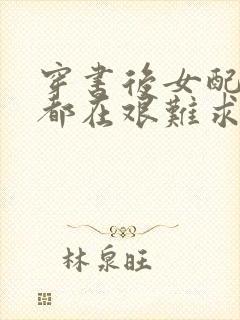 穿書後女配
都在艱難求
林泉旺